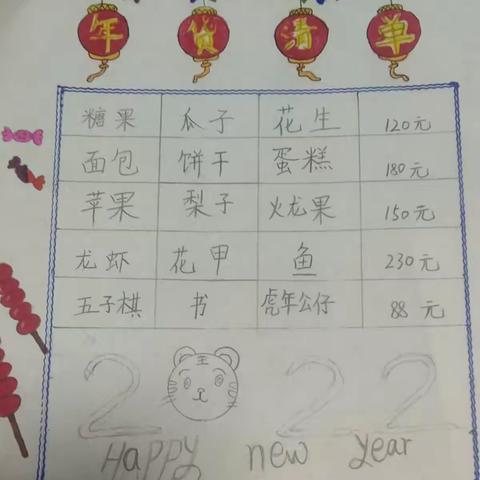 年货清单
糖果 瓜子 花生 120元
面包 饼干 蛋糕 180元
苹果 梨子 火龙果 150元
龙虾 花甲 鱼 230元
五子棋 书 虎年公仔 88元
王
2 22
Happy new year